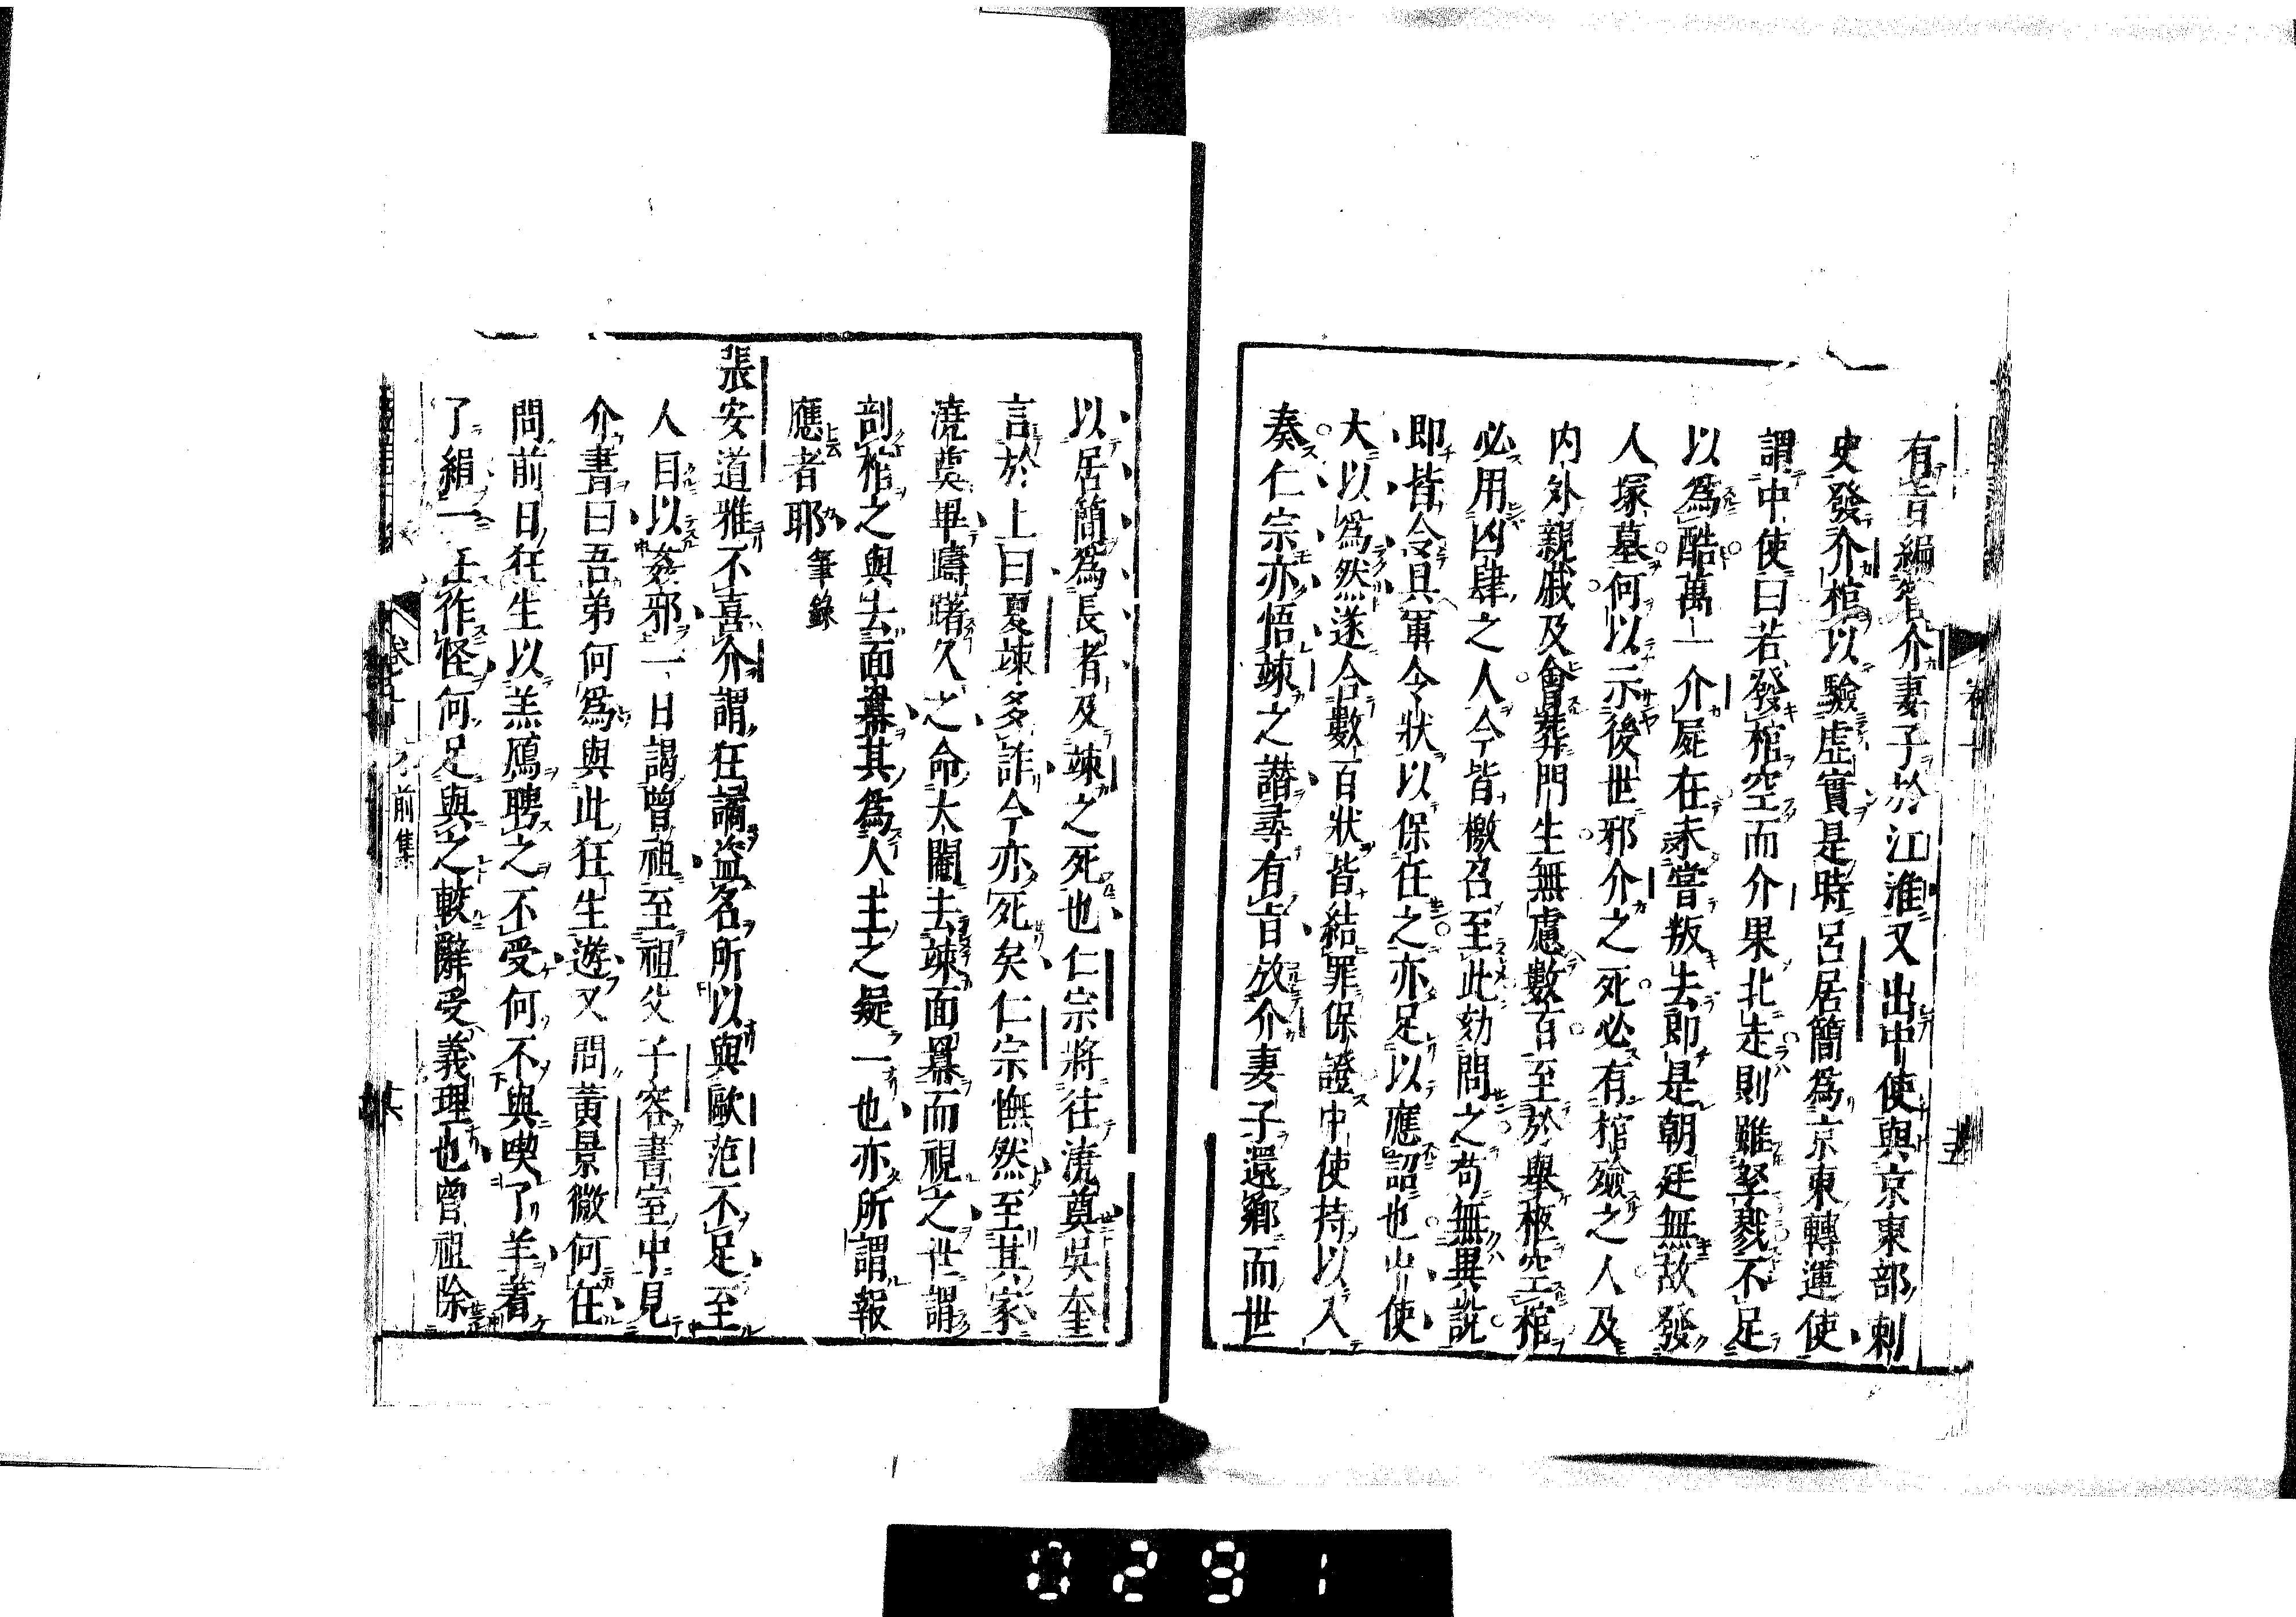 有旨編管介妻子於江淮又出中使與京東部刺
史發介棺以驗虛實是時呂居簡爲京東轉運使
謂中使曰若發棺空而介果北走則雖孥戮不足
以爲酷萬一介屍在未嘗叛去即是朝廷無故發
人塚墓何以示後世邪介之死必有棺殮之人及
内外親戚及會葬門生無慮數百至於舉柩空棺
必用凶肆之人今皆檄召至此劾問之苟無異說
即皆令具軍令狀以保任之亦足以應詔也中使
大以爲然遂合數百狀皆結罪保證中使持以入
奏仁宗亦悟竦之譖尋有旨放介妻子還鄉而世
以居簡爲長者及竦之死也仁宗將往澆奠吳奎
言於上曰夏竦多詐今亦死矣仁宗憮然至其家
澆奠畢躊躇久之命大閹去竦面冪而視之世謂
剖棺之與去面冪其爲人主之疑一也亦所謂報
應者耶 筆錄
張安道雅不喜介謂狂譎盜名所以與歐范不足至
人目以姦邪一日謁曾祖至祖父子容書室中見
介書曰吾弟何爲與此狂生遊又問黃景微何在
問前日狂生以羔鴈聘之不受何不與喫了羊着
了絹一任作怪何足與之較辭受義理也曾祖除
卷十 前集